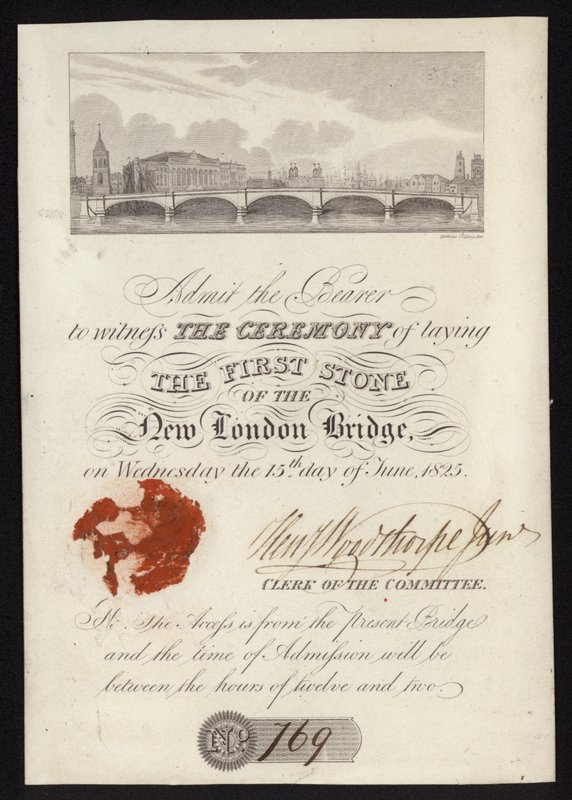 Admit the Bearer
to witneſs THE CEREMONY of laying
THE FIRST STONE
OF THE
New London Bridge,
on Wednesday the 15th day of June, 1825.
Heny Woodthorpe Junr
CLERK OF THE COMMITTEE.
The Acceſs is from the present Bridge
and the time of Admission will be
between the hours of twelve and two.
No 769